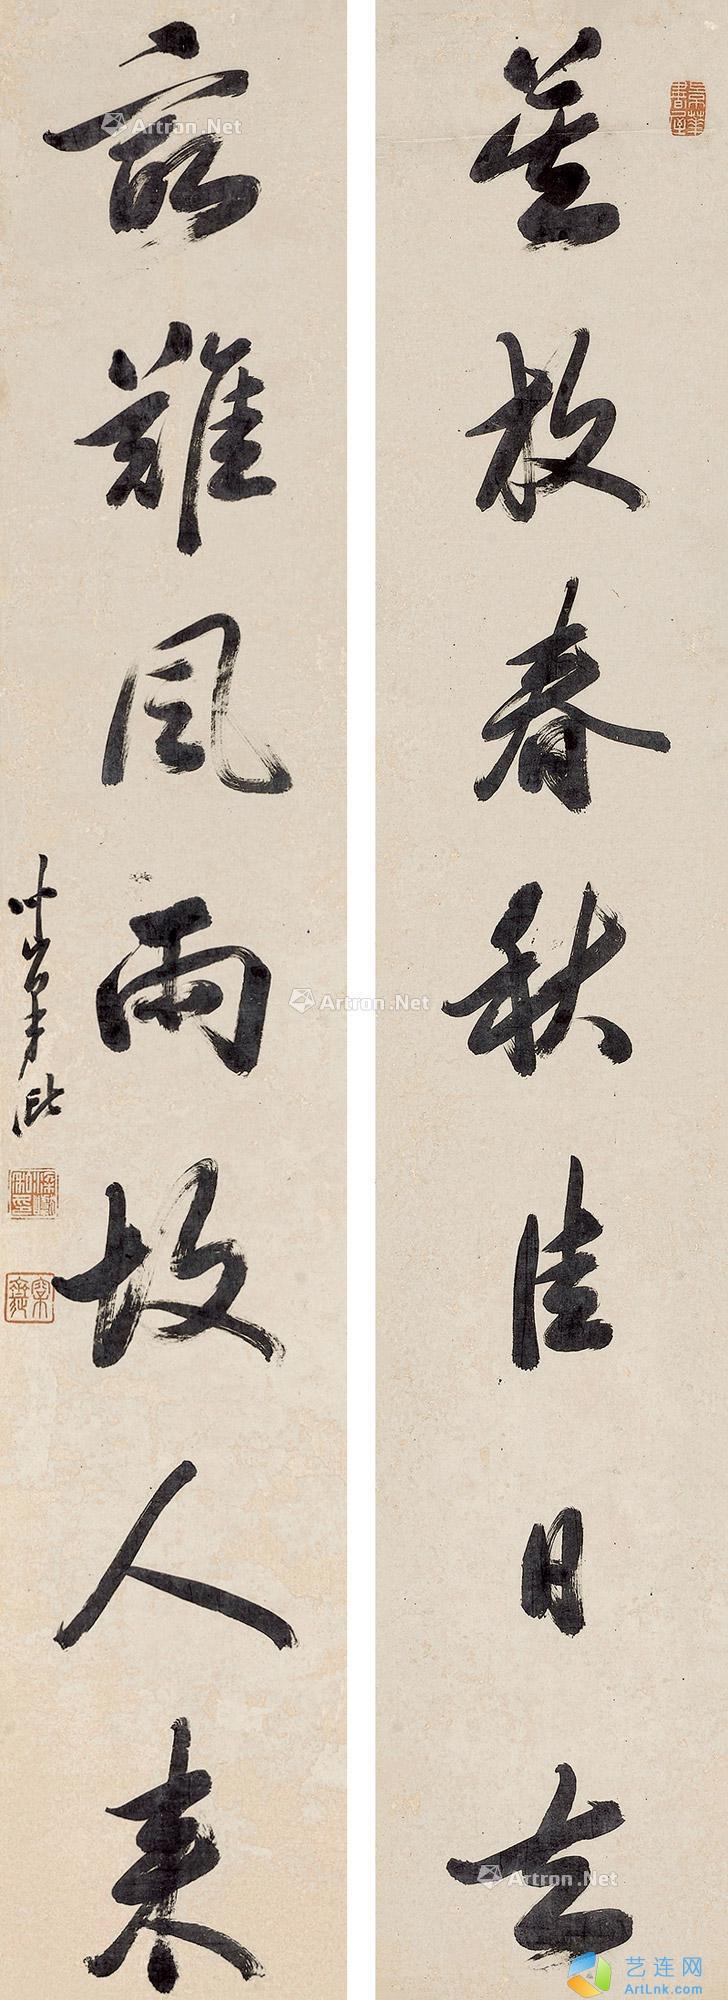 莫放春秋佳日去
最難風雨故人來
Artron.Net
Artron.Net
Artron.Net
艺连网
ArtLnk.com